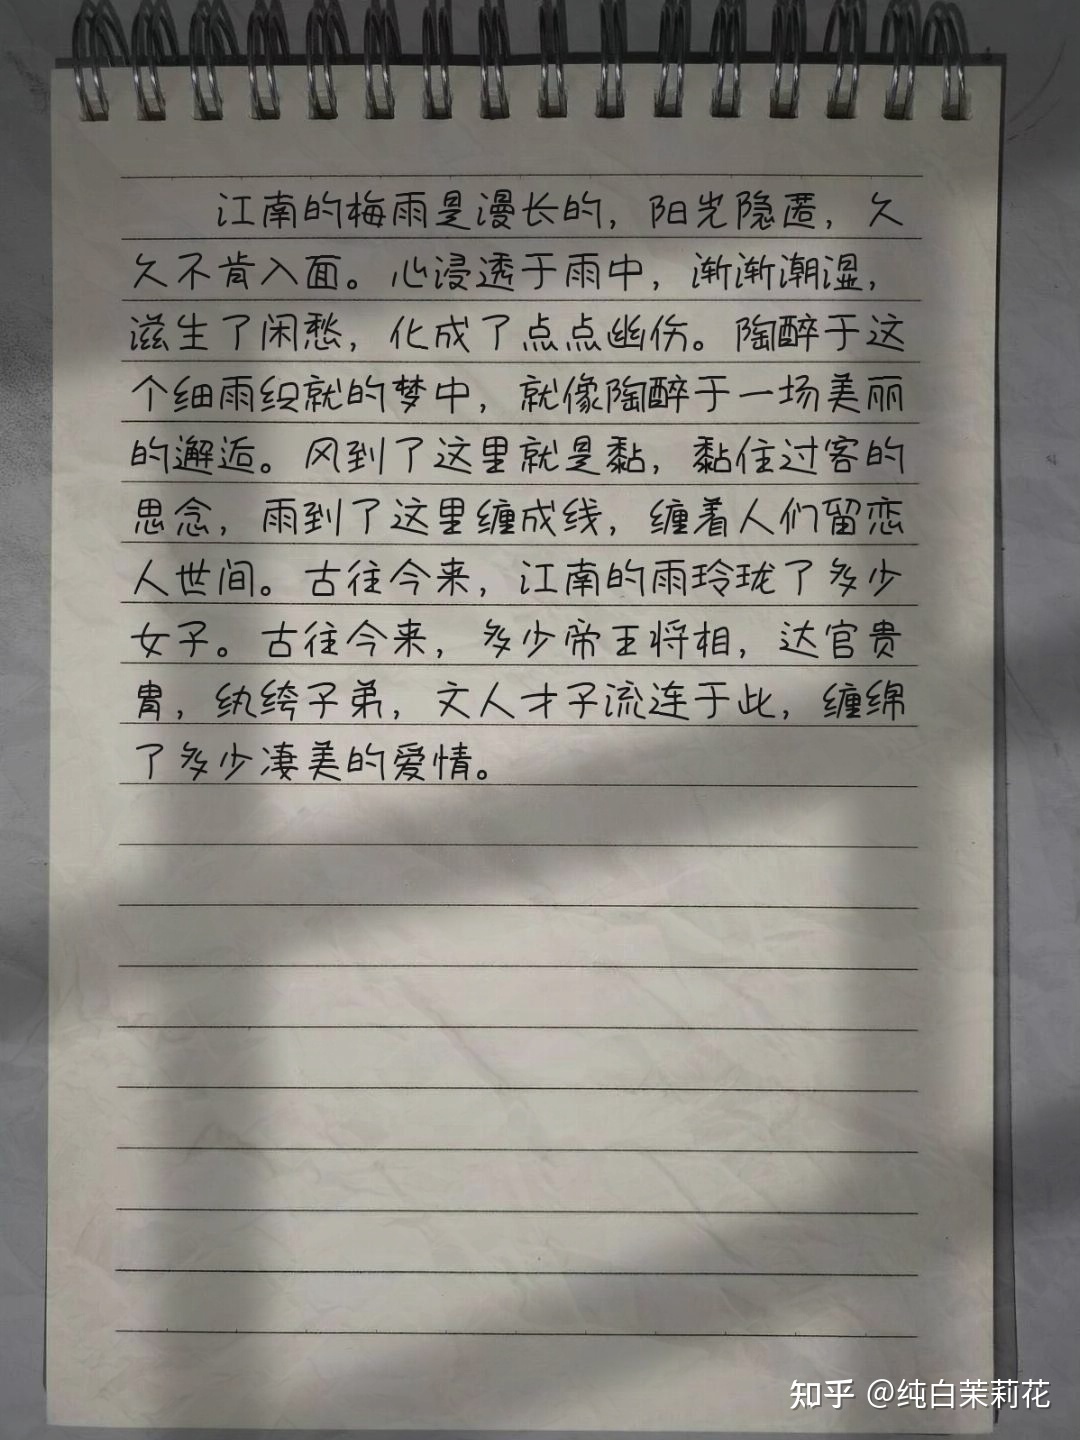 江南的梅雨是漫长的，阳光隐匿，久
久不肯入面。心浸透于雨中，渐渐潮湿，
滋生了闲愁，化成了点点幽伤。陶醉于这
个细雨织就的梦中，就像陶醉于一场美丽
的邂逅。风到了这里就是黏，黏住过客的
思念，雨到了这里缠成线，缠着人们留恋
人世间。古往今来，江南的雨玲珑了多少
女子。古往今来，多少帝王将相，达官贵
胄，纨绔子弟，文人才子流连于此，缠绵
了多少凄美的爱情。
知乎 @纯白茉莉花